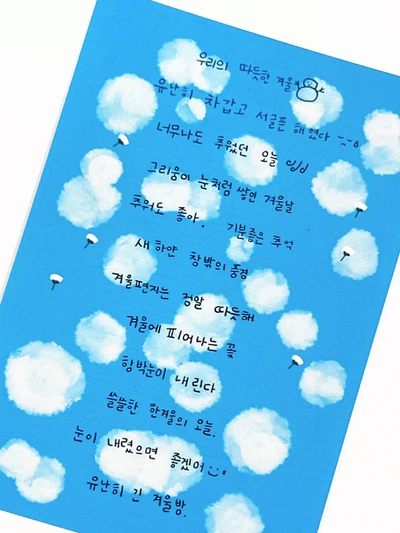 우리의 따듯한 겨울
유난히 차갑고 서글픈 해였다
너무나도 추웠던 오늘
그리움이 눈처럼 쌓인 겨울날
추워도 좋아. 기분좋은 추억
새하얀 창밖의 풍경
겨울편지는 정말 따듯해
겨울에 피어나는 꽃
함박눈이 내린다
쓸쓸한 한겨울의 오늘.
눈이 내렸으면 좋겠어
유난히 긴 겨울밤.